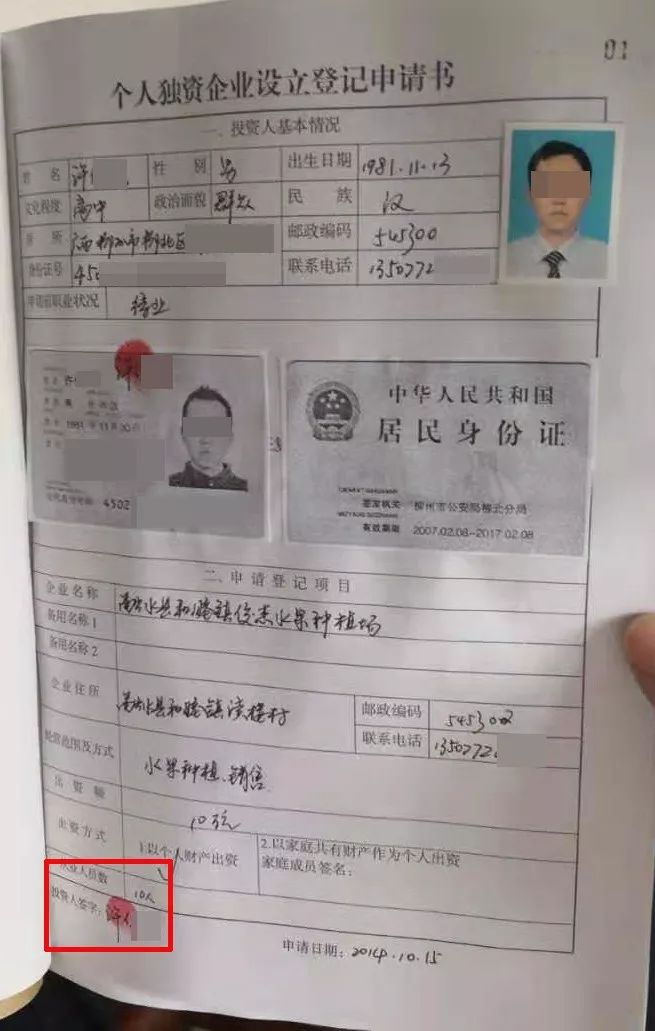 01
个人独资企业设立登记申请书
一、投资人基本情况
姓 名 许 性 别 男 出生日期 1981.11.13
文化程度 高中 政治面貌 群众 民 族 汉
住 所 广西柳州市柳北区 邮政编码 545300
身份证号 45 联系电话 1350772
申请前职业状况 待业
许
1981 年 11 月
4502
中华人民共和国
居民身份证
签发机关 柳州市公安局柳北分局
有效期限 2007.02.08-2017.02.08
二、申请登记项目
企业名称 水县和睦镇俊杰水果种植场
备用名称1
备用名称2
企业住所 水县和睦镇 村 邮政编码 545302
联系电话 1350772
经营范围及方式 水果种植、销售
出 资 额 10万元
出资方式 1.以个人财产出资 2.以家庭共有财产作为个人出资
家庭成员签名：
从业人员数 10人
投资人签字： 许
申请日期： 2014.10.15